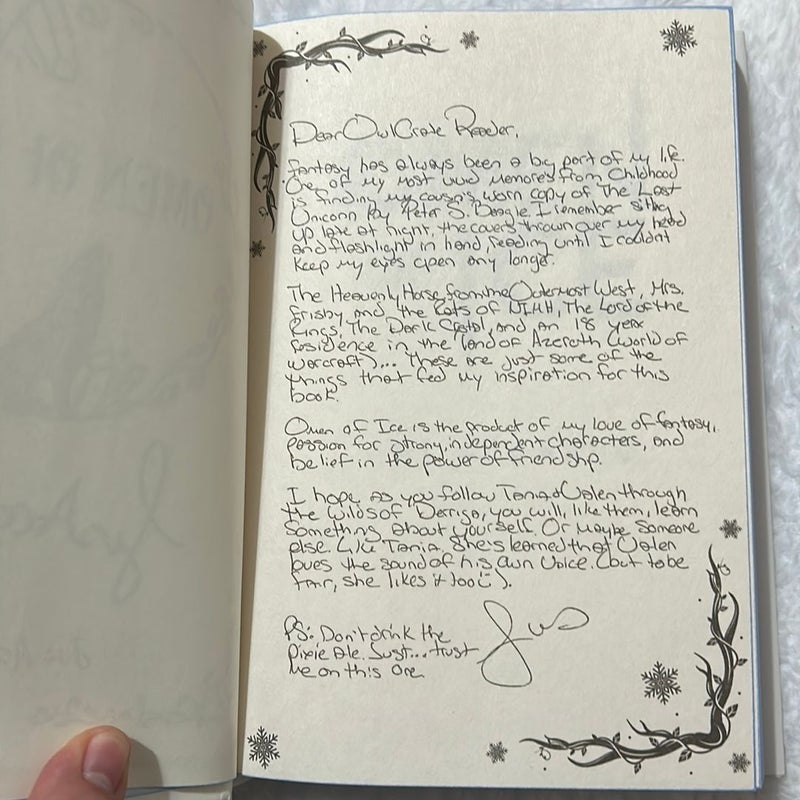 Dear OwlCrate Reader,
Fantasy has always been a big part of my life.
One of my most vivid memories from Childhood
is finding my cousin's worn copy of The Last
Unicorn by Peter S. Beagle. I remember sitting
up late at night, the covers thrown over my head
and flashlight in hand, reading until I couldn't
keep my eyes open any longer.
The Heavenly Horse from the Outermost West, Mrs.
Frisby and the Rats of NIMH, The Lord of the
Rings, The Dark Crystal, and an 18 year
residence in the land of Azeroth (World of
Warcraft)... These are just some of the
things that fed my inspiration for this
book.
Omen of Ice is the product of my love of fantasy,
passion for strong, independent characters, and
belief in the power of friendship.
I hope as you follow Tania & Valen through
the wilds of Derriga, you will, like them, learn
something about yourself. Or maybe someone
else. Like Tania. She's learned that Valen
loves the sound of his own voice. (but to be
fair, she likes it too :) ).
PS: Don't drink the
Pixie ale. Just... trust
me on this one
Jus